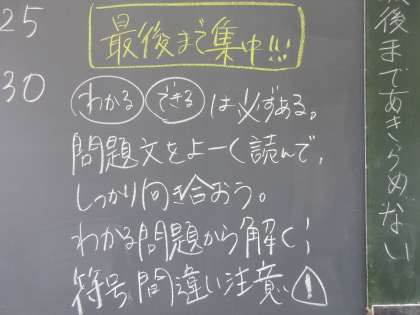 25
30
最後まで集中!!!
わかる できる は必ずある。
問題文をよーく読んで、
しっかり向き合おう。
わかる問題から解く!
符号間違い注意 !
最後まであきらめない